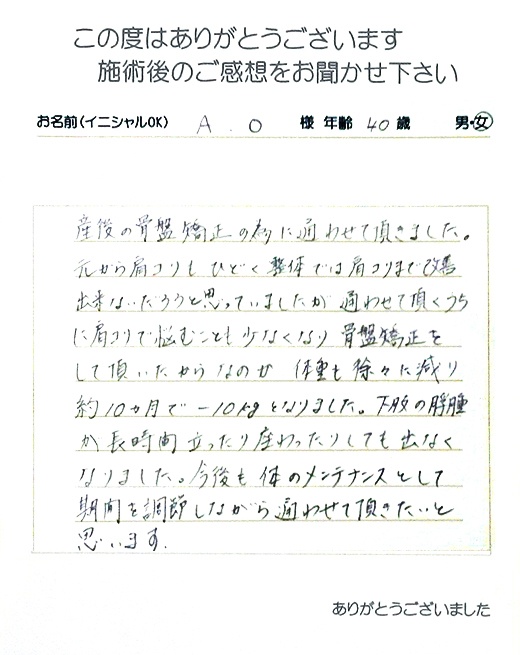 この度はありがとうございます
施術後のご感想をお聞かせ下さい
お名前(イニシャルOK) A.O 様 年齢 40 歳 男・女
産後の骨盤矯正の為に通わせて頂きました。
元から肩コリもひどく整体では肩コリまで改善
出来ないだろうと思っていましたが 通わせて頂くうち
に肩コリで悩むことも少なくなり 骨盤矯正を
して頂いたからなのか 体重も徐々に減り
約10カ月で-10kgとなりました。下肢の浮腫
が長時間立ったり座わったりしても出なく
なりました。今後も体のメンテナンスとして
期間を調節しながら通わせて頂きたいと
思います.
ありがとうございました